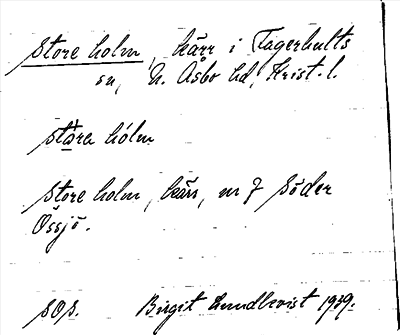 Store holm, kärr i Tågerhults
sn, N. Åsbo hd, Krist. l.
ståra hólm
Store holm, kärr, nr 7 Söder
Össjö.
SOS. Birgit Lundkvist 1939.